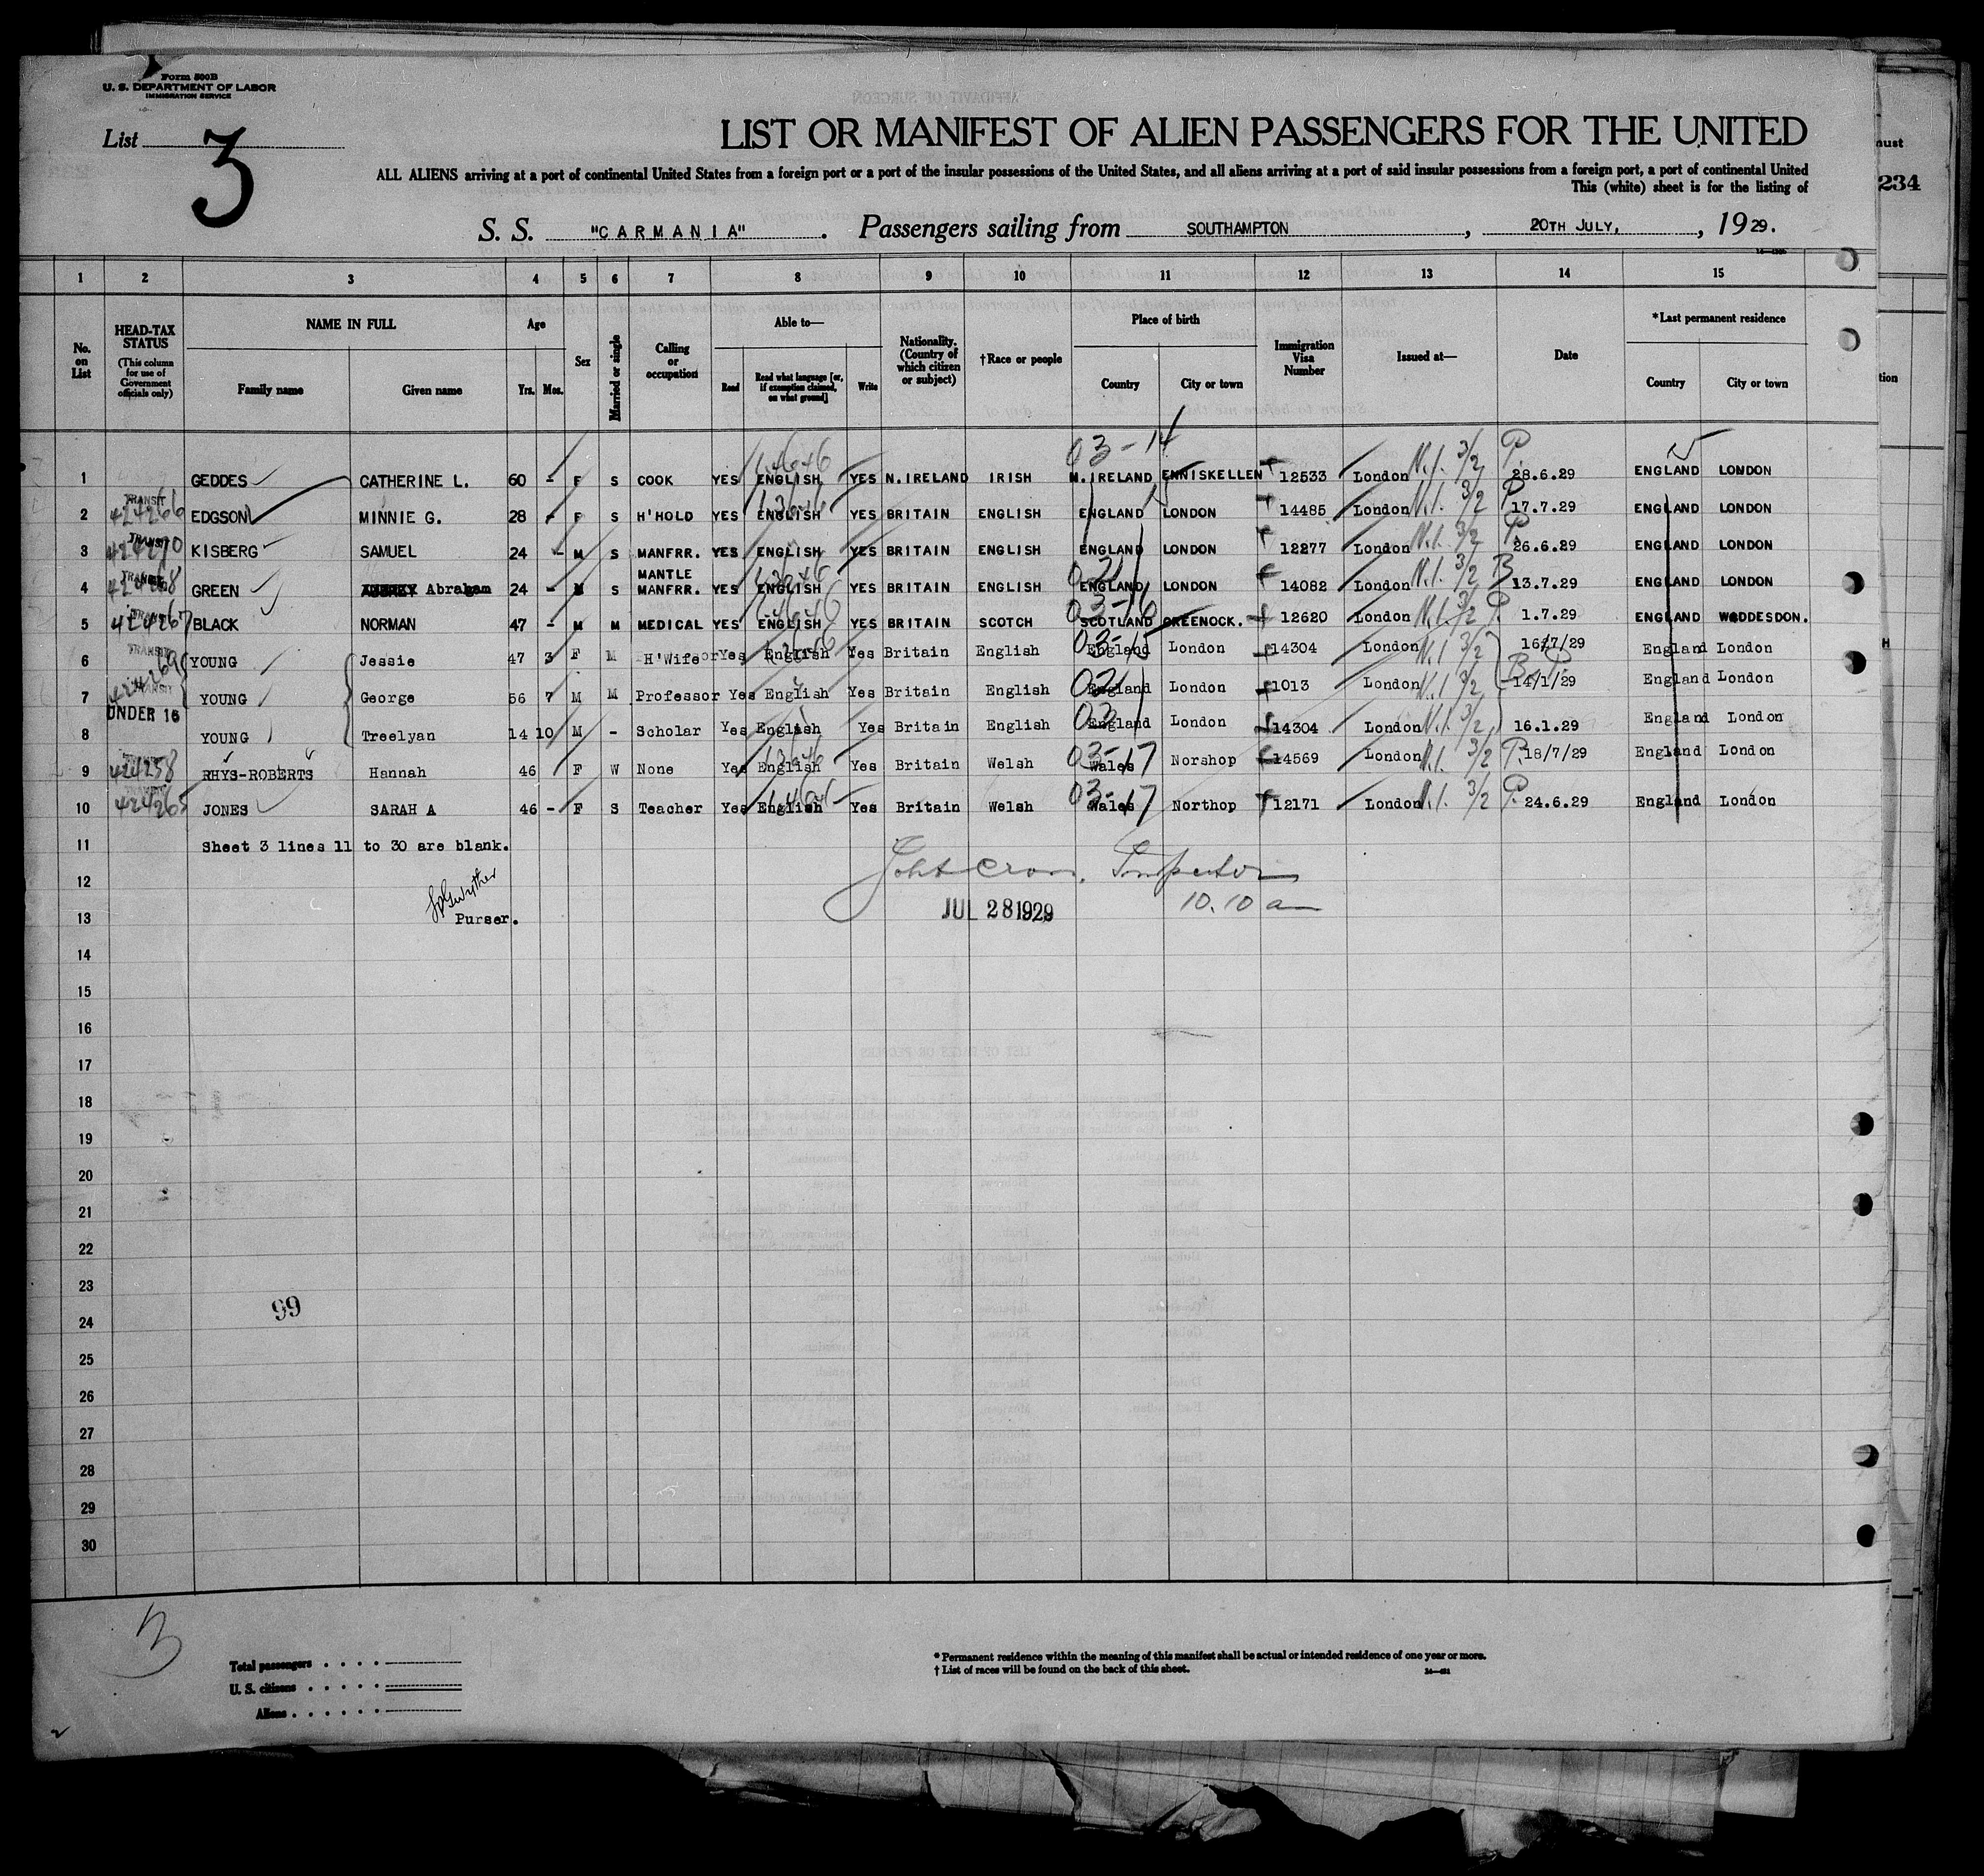 Form 500B
U. S. DEPARTMENT OF LABOR
IMMIGRATION SERVICE
List 3
LIST OR MANIFEST OF ALIEN PASSENGERS FOR THE UNITED
ALL ALIENS arriving at a port of continental United States from a foreign port or a port of the insular possessions of the United States, and all aliens arriving at a port of said insular possessions from a foreign port, a port of continental United
This (white) sheet is for the listing of
S. S. "CARMANIA". Passengers sailing from SOUTHAMPTON, 20TH JULY, 1929.
must
234
tion
H
1 2 3 4 5 6 7 8 9 10 11 12 13 14 15
No. on List
HEAD-TAX STATUS (This column for use of Government officials only)
NAME IN FULL
Family name Given name
Age
Yrs. Mos.
Sex
Married or single
Calling or occupation
Able to—
Read Read what language [or, if exemption claimed, on what ground] Write
Nationality. (Country of which citizen or subject)
†Race or people
Place of birth
Country City or town
Immigration Visa Number
Issued at—
Date
*Last permanent residence
Country City or town
03-14
1 GEDDES CATHERINE L. 60 - F S COOK YES ENGLISH YES N.IRELAND IRISH N.IRELAND ENNISKELLEN 12533 London N.I. 3/2 P. 28.6.29 ENGLAND LONDON
2 TRANSIT 424266 EDGSON MINNIE G. 28 - F S H'HOLD YES ENGLISH YES BRITAIN ENGLISH ENGLAND LONDON 14485 London N.I. 3/2 P. 17.7.29 ENGLAND LONDON
3 TRANSIT 424270 KISBERG SAMUEL 24 - M S MANFRR. YES ENGLISH YES BRITAIN ENGLISH ENGLAND LONDON 12277 London N.I. 3/2 P. 26.6.29 ENGLAND LONDON
4 TRANSIT 424268 GREEN Abraham 24 - M S MANTLE MANFRR. YES ENGLISH YES BRITAIN ENGLISH ENGLAND LONDON 14082 London N.I. 3/2 B 13.7.29 ENGLAND LONDON
5 TRANSIT 424267 BLACK NORMAN 47 - M M MEDICAL YES ENGLISH YES BRITAIN SCOTCH 03-16 SCOTLAND GREENOCK. 12620 London N.I. 3/2 P. 1.7.29 ENGLAND WODDESDON.
6 TRANSIT YOUNG Jessie 47 3 F M H'Wife or Yes English Yes Britain English 03-15 England London 14304 London N.I 3/2 16/7/29 England London
7 TRANSIT 424269 YOUNG George 56 7 M M Professor Yes English Yes Britain English England London 1013 London N.I 3/2 14/1/29 England London
8 UNDER 16 YOUNG Treelyan 14 10 M - Scholar Yes English Yes Britain English England London 14304 London N.I. 3/2 16.1.29 England London
9 424258 RHYS-ROBERTS Hannah 46 F W None Yes English Yes Britain Welsh 03-17 Wales Norshop 14569 London N.I. 3/2 P. 18/7/29 England London
10 TRANSIT 424265 JONES SARAH A 46 - F S Teacher Yes English Yes Britain Welsh 03-17 Wales Northop 12171 London N.I. 3/2 P. 24.6.29 England London
11 Sheet 3 lines 11 to 30 are blank.
12 Inspector
13 Purser. JUL 28 1929 10.10 a
14
15
16
17
18
19
20
21
22
23
24 99
25
26
27
28
29
30
3
Total passengers
U. S. citizens
Aliens
* Permanent residence within the meaning of this manifest shall be actual or intended residence of one year or more.
† List of races will be found on the back of this sheet.